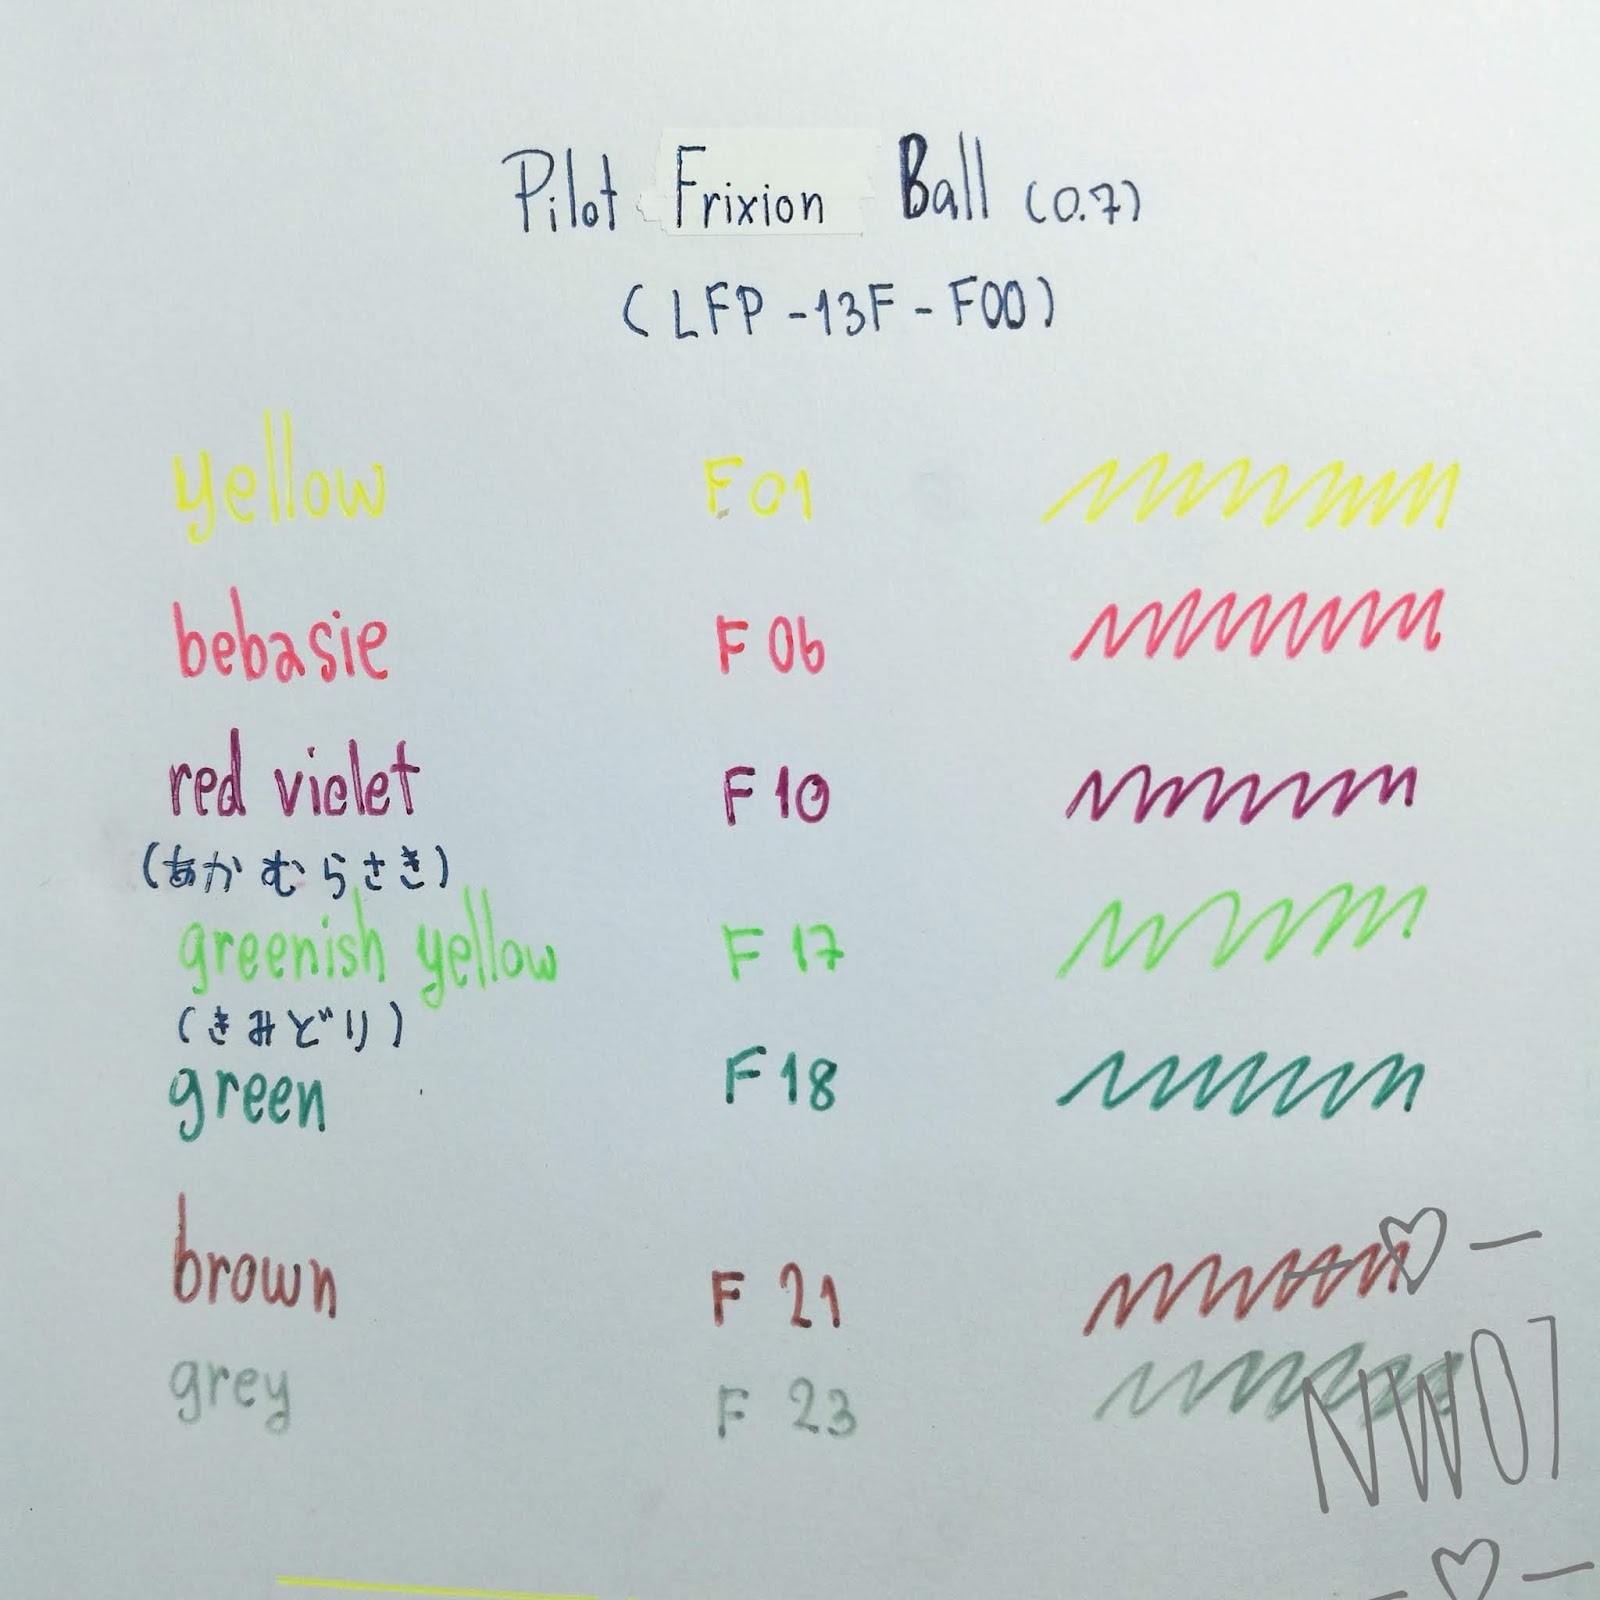 Pilot Frixion Ball (0.7)
(LFP-13F-F00)
yellow F01
bebasie F06
red violet F10
(あかむらさき)
greenish yellow F17
(きみどり)
green F18
brown F 21
grey F 23
NW07